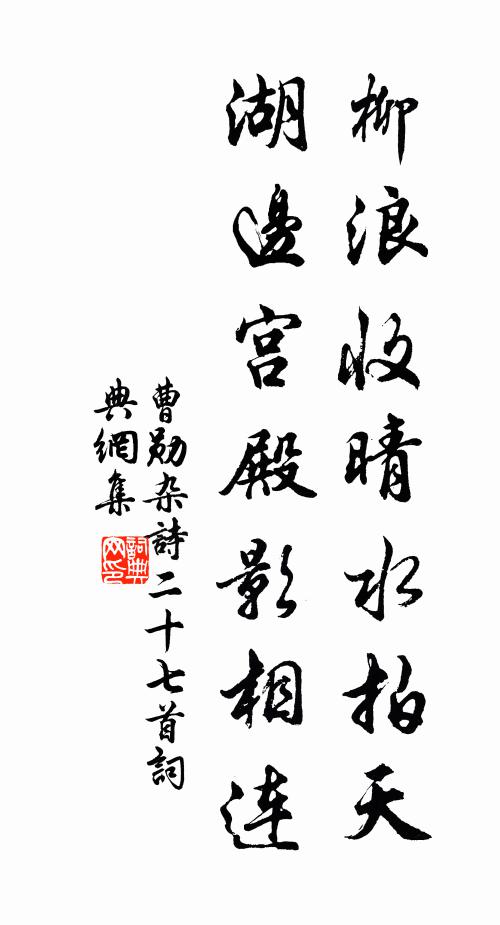 柳浪收晴水拍天
湖邊宮殿影相連
曹勛杂詩二十七首詞
典網集
詞典
网印